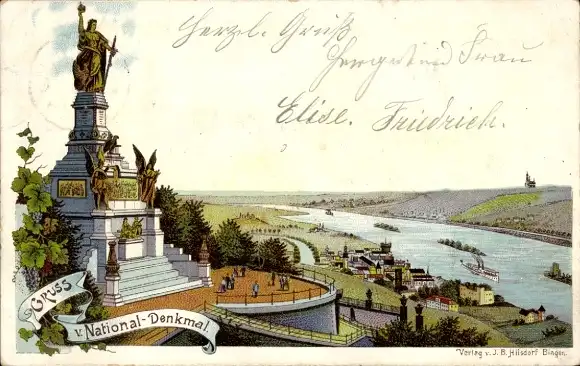 Herzl. Gruß
und Frau
Elise. Friedrich.
Gruss
v. National-Denkmal.
Verlag v. J. B. Hilsdorf Bingen.